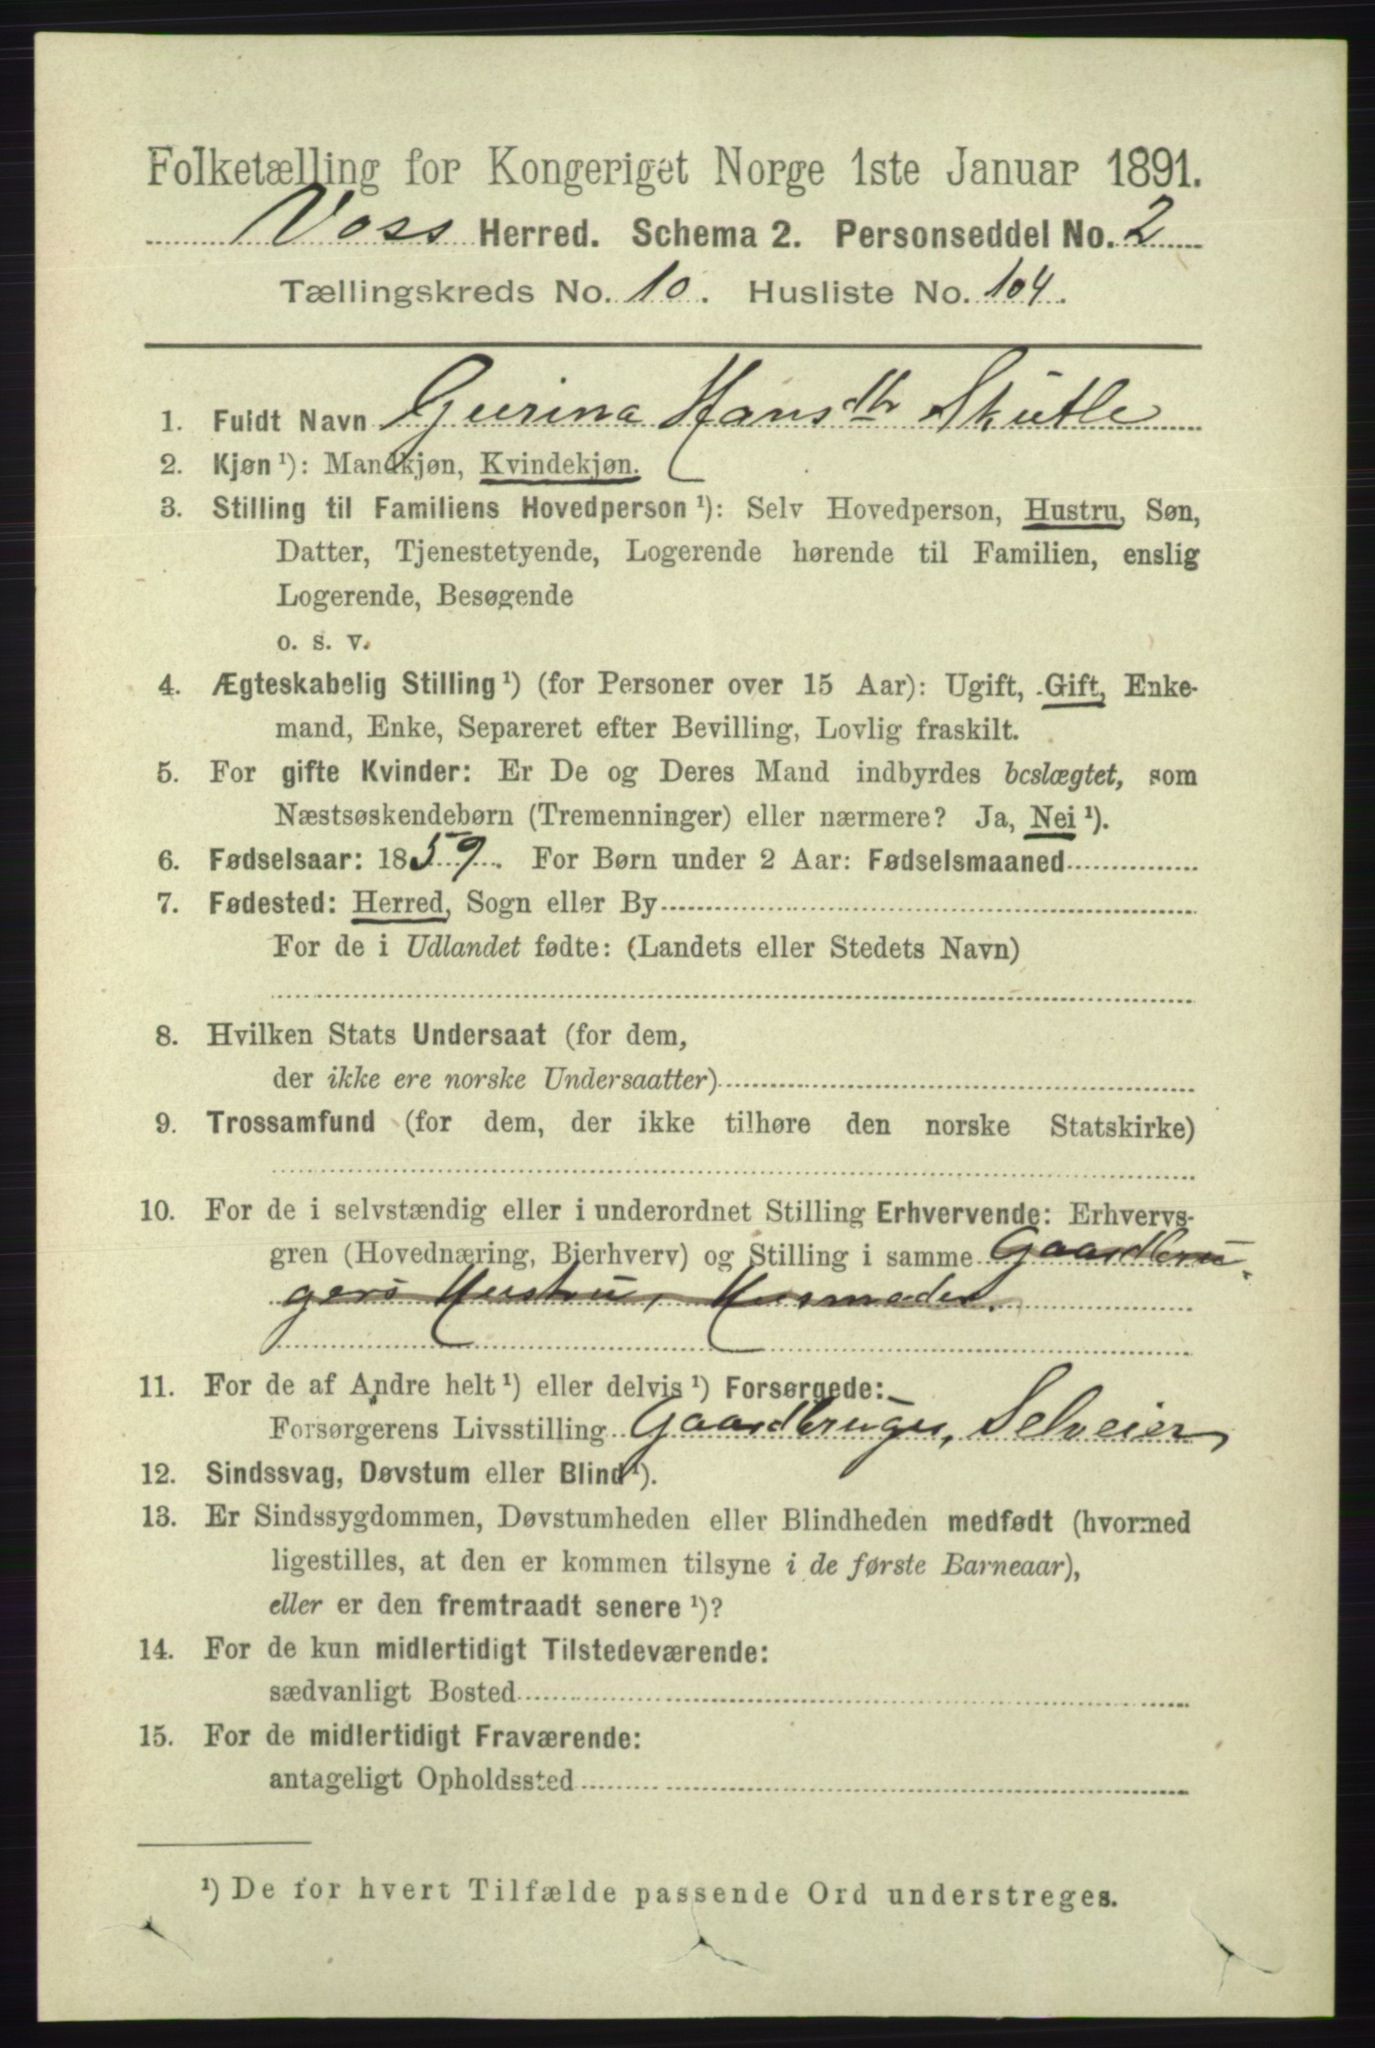 Folketælling for Kongeriget Norge 1ste Januar 1891.
Voss Herred. Schema 2. Personseddel No. 2
Tællingskreds No. 10. Husliste No. 104.
1. Fuldt Navn Gurina Hansdtr Skutle
2. Kjøn ¹): Mandkjøn, Kvindekjøn.
3. Stilling til Familiens Hovedperson ¹): Selv Hovedperson, Hustru, Søn,
Datter, Tjenestetyende, Logerende hørende til Familien, enslig
Logerende, Besøgende
o. s. v.
4. Ægteskabelig Stilling ¹) (for Personer over 15 Aar): Ugift, Gift, Enke-
mand, Enke, Separeret efter Bevilling, Lovlig fraskilt.
5. For gifte Kvinder: Er De og Deres Mand indbyrdes beslægtet, som
Næstsøskendebørn (Tremenninger) eller nærmere? Ja, Nei ¹).
6. Fødselsaar: 1859. For Børn under 2 Aar: Fødselsmaaned
7. Fødested: Herred, Sogn eller By
For de i Udlandet fødte: (Landets eller Stedets Navn)
8. Hvilken Stats Undersaat (for dem,
der ikke ere norske Undersaatter)
9. Trossamfund (for dem, der ikke tilhøre den norske Statskirke)
10. For de i selvstændig eller i underordnet Stilling Erhvervende: Erhvervs-
gren (Hovednæring, Bierhverv) og Stilling i samme Gaardbru-
gers Hustru, Husmoder.
11. For de af Andre helt ¹) eller delvis ¹) Forsørgede:
Forsørgerens Livsstilling Gaardbruger, Selveier
12. Sindssvag, Døvstum eller Blind ¹).
13. Er Sindssygdommen, Døvstumheden eller Blindheden medfødt (hvormed
ligestilles, at den er kommen tilsyne i de første Barneaar),
eller er den fremtraadt senere ¹)?
14. For de kun midlertidigt Tilstedeværende:
sædvanligt Bosted
15. For de midlertidigt Fraværende:
antageligt Opholdssted
¹) De for hvert Tilfælde passende Ord understreges.